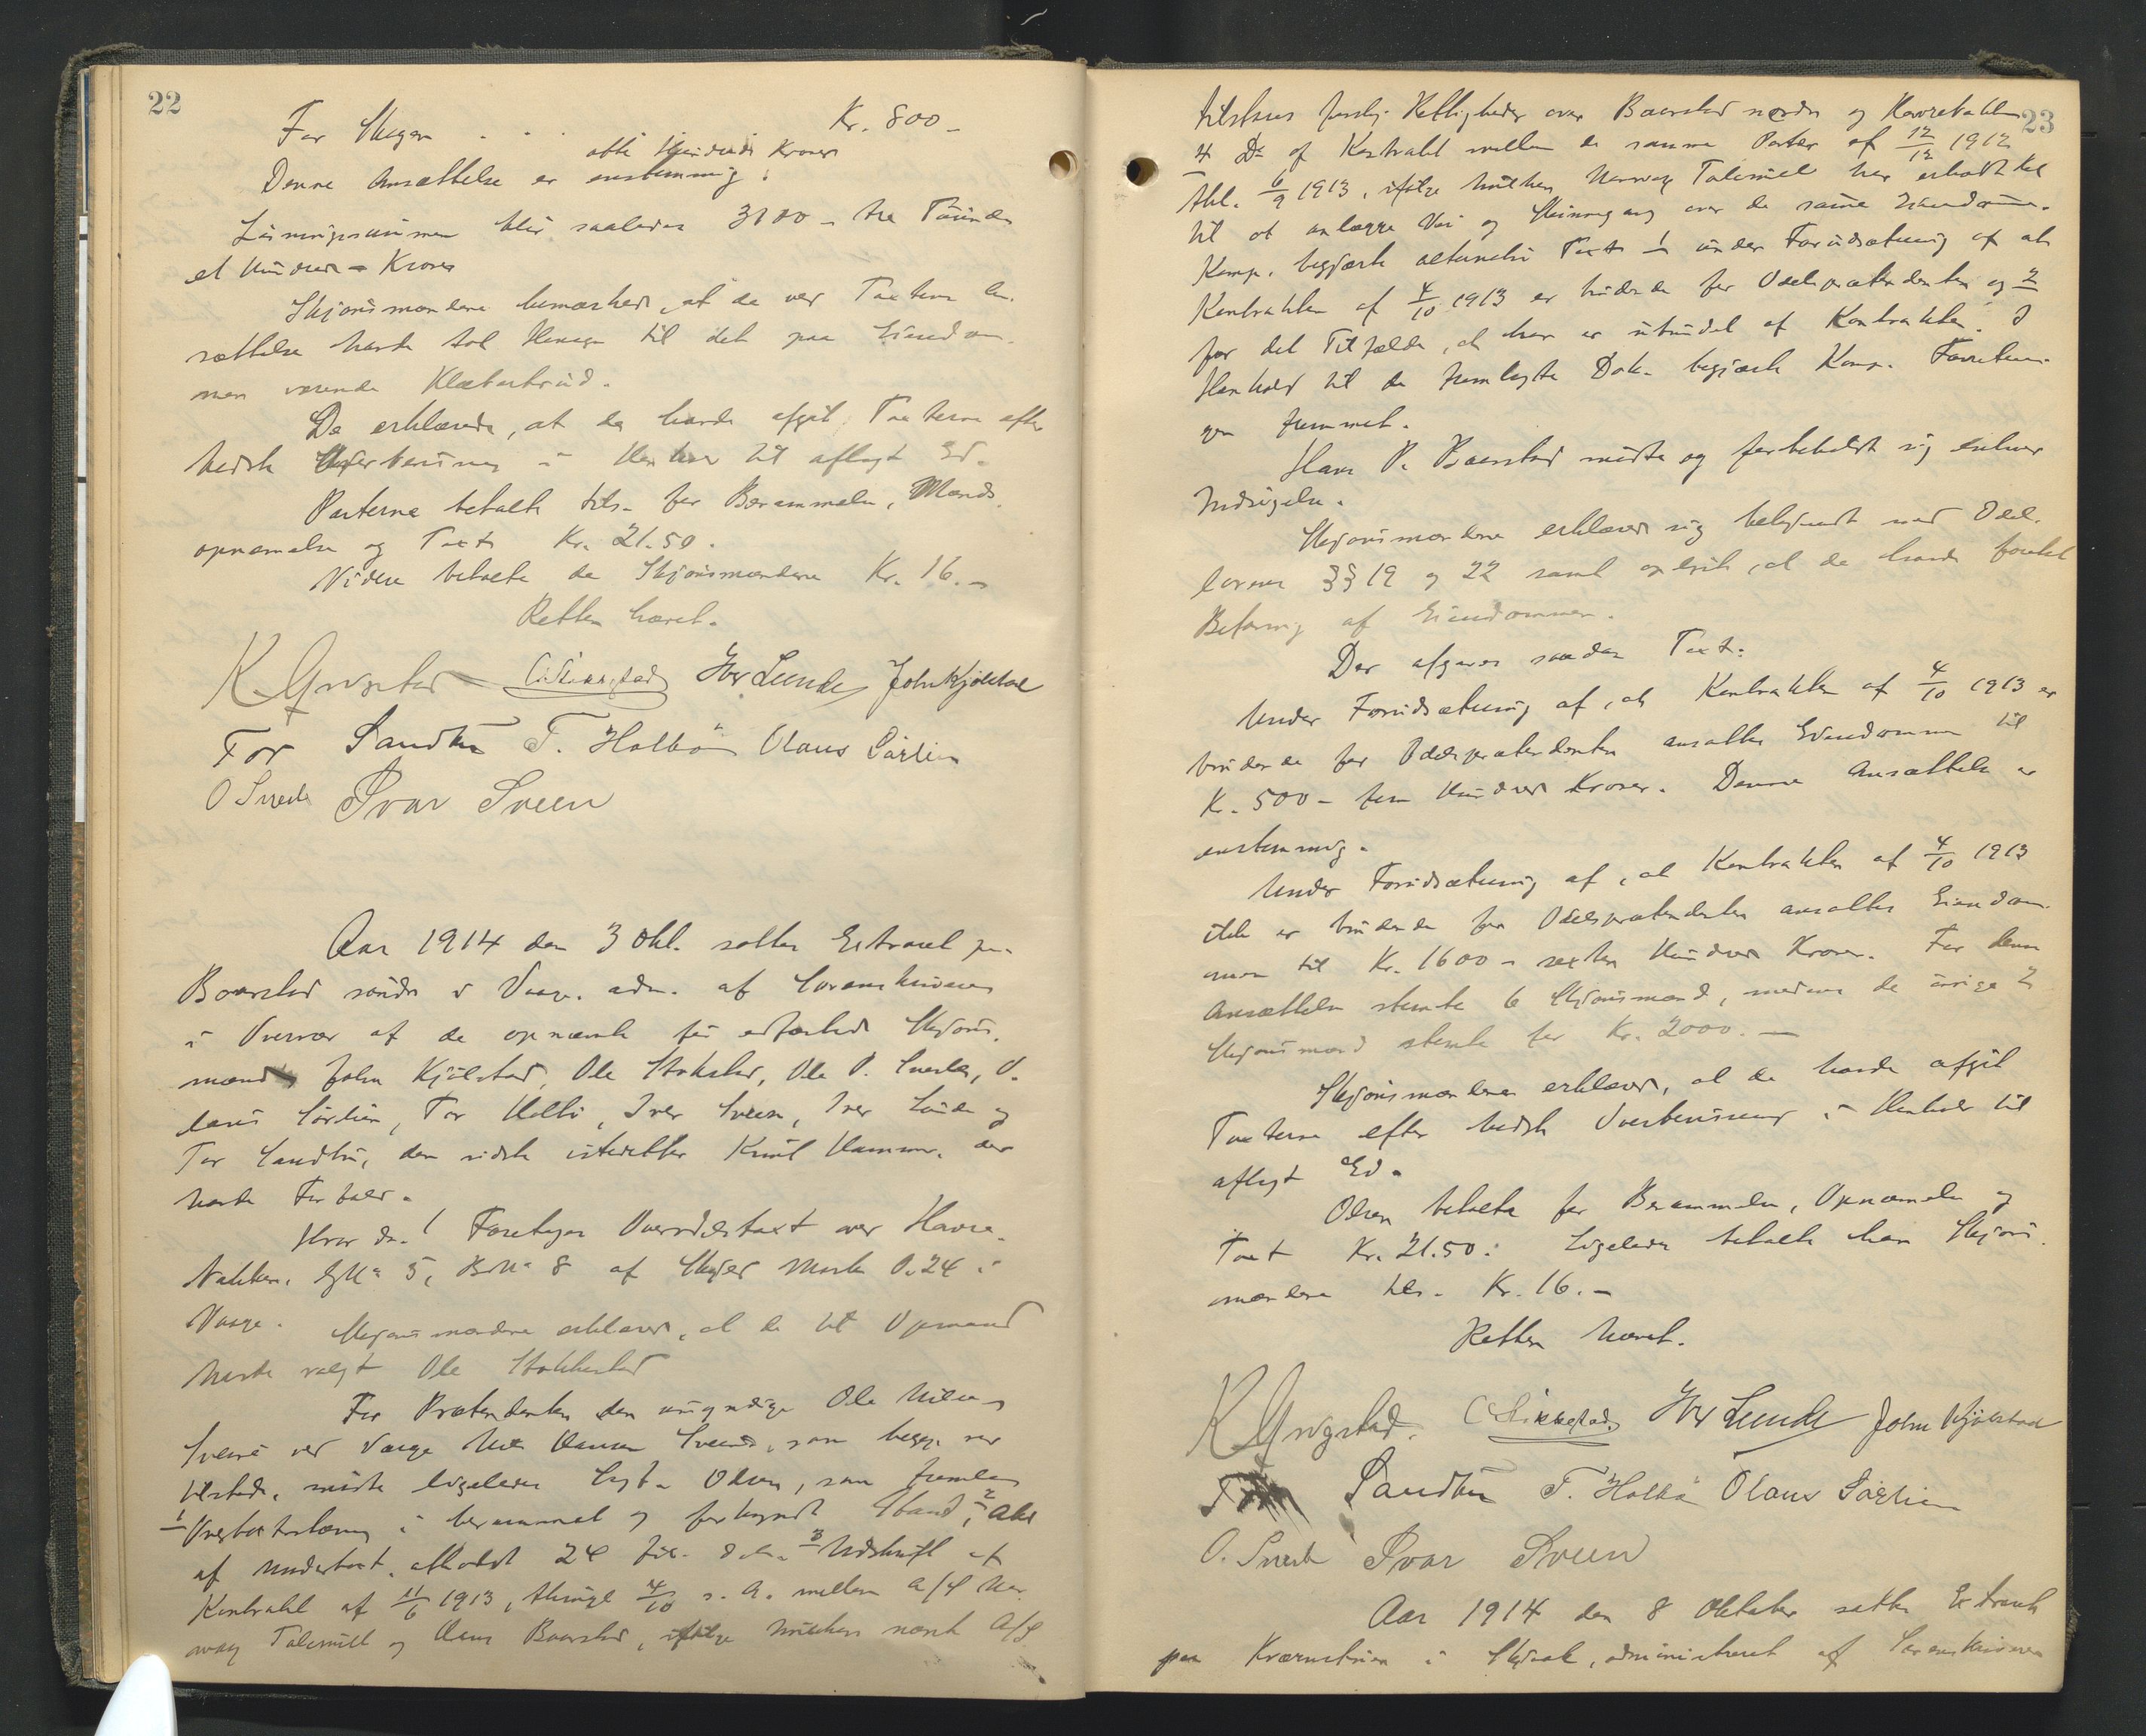 22
For Skogen . . . Kr. 800 -
otte Hundrede Kroner
Denne Ansættelse er enstemmig.
Løsningssummen blir saaledes 3100 - tre Tusinde
et Hundrede Kroner
Skjønsmændene bemærkede, at de ved Taxtens An-
sættelse havde tat Hensyn til det paa Eiendom-
men værende Klæbersbrud.
De erklærede, at de havde afgit Taxterne efter
bedste Overbevisning i Henhold til aflagt Ed.
Parterne betalte tils. for Berammelse, Mænds
opnævnelse og Taxt Kr. 21.50.
Videre betalte de Skjønsmændene Kr. 16.-
Retten hævet.
K Yngstad Iver Lunde John Kjølstad
Tor Sandbu T. Holbö Olaus Sörlien
O Snerle Ivar Sveen
Aar 1914 den 3 Okt. sattes Extraret paa
Baarstad søndre i Vaage. adm. af Sorenskriveren
i Overvær af de opnævnte før edfæstede Skjøns-
mænd John Kjølstad, Ole Stokstad, Ole P. Snerle, O-
laus Sørlien, Tor Holbö, Iver Sveen, Iver Lunde og
Tor Sandbu, den sidste istedetfor Knut Hammer, der
havde Forfald.
Hvor da! Foretoges Overodelstaxt over Havre-
bakken, GNo 5, BNo 8 af Skyld Mark 0.24 i
Vaage. Skjønsmændene erklærede, at de til Opmand
havde valgt Ole Stokkestad
For Prætendenten den umyndige Ole Nilsen
Sveen ved Værge Nils Hansen Sveen, som begge var
tilstede, mødte ligeledes Olsen, som fremla
1 i berammet og forkyndt Stand, 2 Akt
af Undertaxt, afholdt 24 3 Udskrift af
Kontrakt af 11/6 1913, thingl. 4/10 s. A. mellem A/S Nor-
way Talcmill og Hans Baarstad, ifølge hvilken nævnte A/S
23
tilstaaes forskj. Rettigheder over Baarstad nordre og Havrebakken
4 Do af Kontrakt mellem de samme Parter af 12/12 1912
thl. 6/9 1913, ifølge hvilken Norway Talcmill har erholdt Ret
til at anlægge Vei og Skinnegang over de samme Eiendomme.
Komp. begjærte alternativ Taxt 1 under Forudsætning af at
Kontrakten af 4/10 1913 er bindende for Odelsprætendenten og 2
for det Tilfælde, at han er ubundet af Kontrakten. I
Henhold til de fremlagte Dok. begjærte Komp. Forretnin-
gen fremmet.
Hans P. Baarstad mødte og forbeholdt sig enhver
Indsigelse.
Skjønsmændene erklærede sig bekjendt med Odels-
lovens §§ 19 og 22 samt oplyste, at de havde foretat
Befaring af Eiendommen.
Der afgaves saadan Taxt:
Under Forudsætning af, at Kontrakten af 4/10 1913 er
bindende for Odelsprætendenten ansattes Eiendommen til
Kr. 500 - fem Hundrede Kroner. Denne Ansættelse er
enstemmig.
Under Forudsætning af, at Kontrakten af 4/10 1913
ikke er bindende for Odelsprætendenten ansattes Eiendom-
men til Kr. 1600 - sexten Hundrede Kroner. For denne
Ansættelse stemte 6 Skjønsmænd, medens de øvrige 2
Skjønsmænd stemte for Kr. 2000.-
Skjønsmændene erklærede, at de havde afgit
Taxterne efter bedste Overbevisning i Henhold til
aflagt Ed.
Olsen betalte for Berammelse, Opnævnelse og
Taxt Kr. 21.50. Ligeledes betalte han Skjøns-
mændene tils. Kr. 16.-
Retten hævet.
K Yngstad. Iver Lunde John Kjølstad
Sandbu T. Holbö Olaus Sörlien
O. Snerle Ivar Sveen
Aar 1914 den 8 Oktober sattes Extraret
paa i Skjaak, administreret af Sorenskriveren